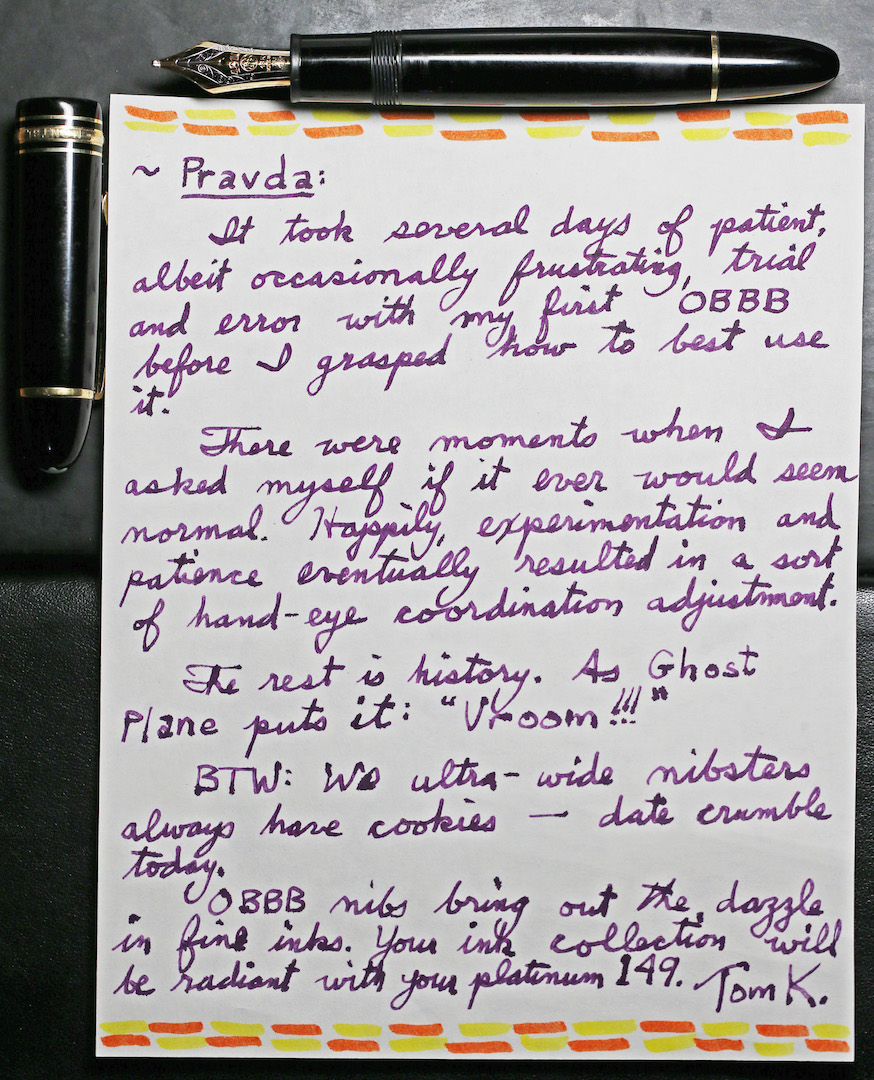 ~ Pravda:
It took several days of patient,
albeit occasionally frustrating, trial
and error with my first OBBB
before I grasped how to best use
it.
There were moments when I
asked myself if it ever would seem
normal. Happily, experimentation and
patience eventually resulted in a sort
of hand-eye coordination adjustment.
The rest is history. As Ghost
Plane puts it: "Vroom!!!"
BTW: We ultra-wide nibsters
always have cookies — date crumble
today.
OBBB nibs bring out the dazzle
in fine inks. Your ink collection will
be radiant with your platinum 149. Tom K.